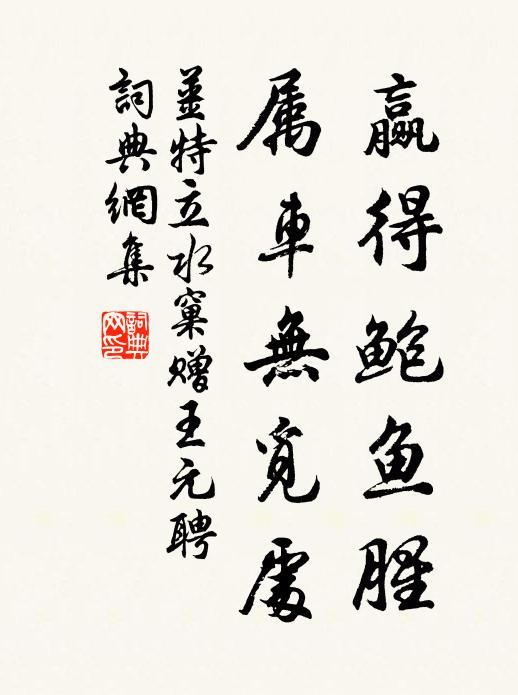 赢得鲍鱼腥
属車無覓處
姜特立水窠赠王元聘
詞典網集
詞典网印